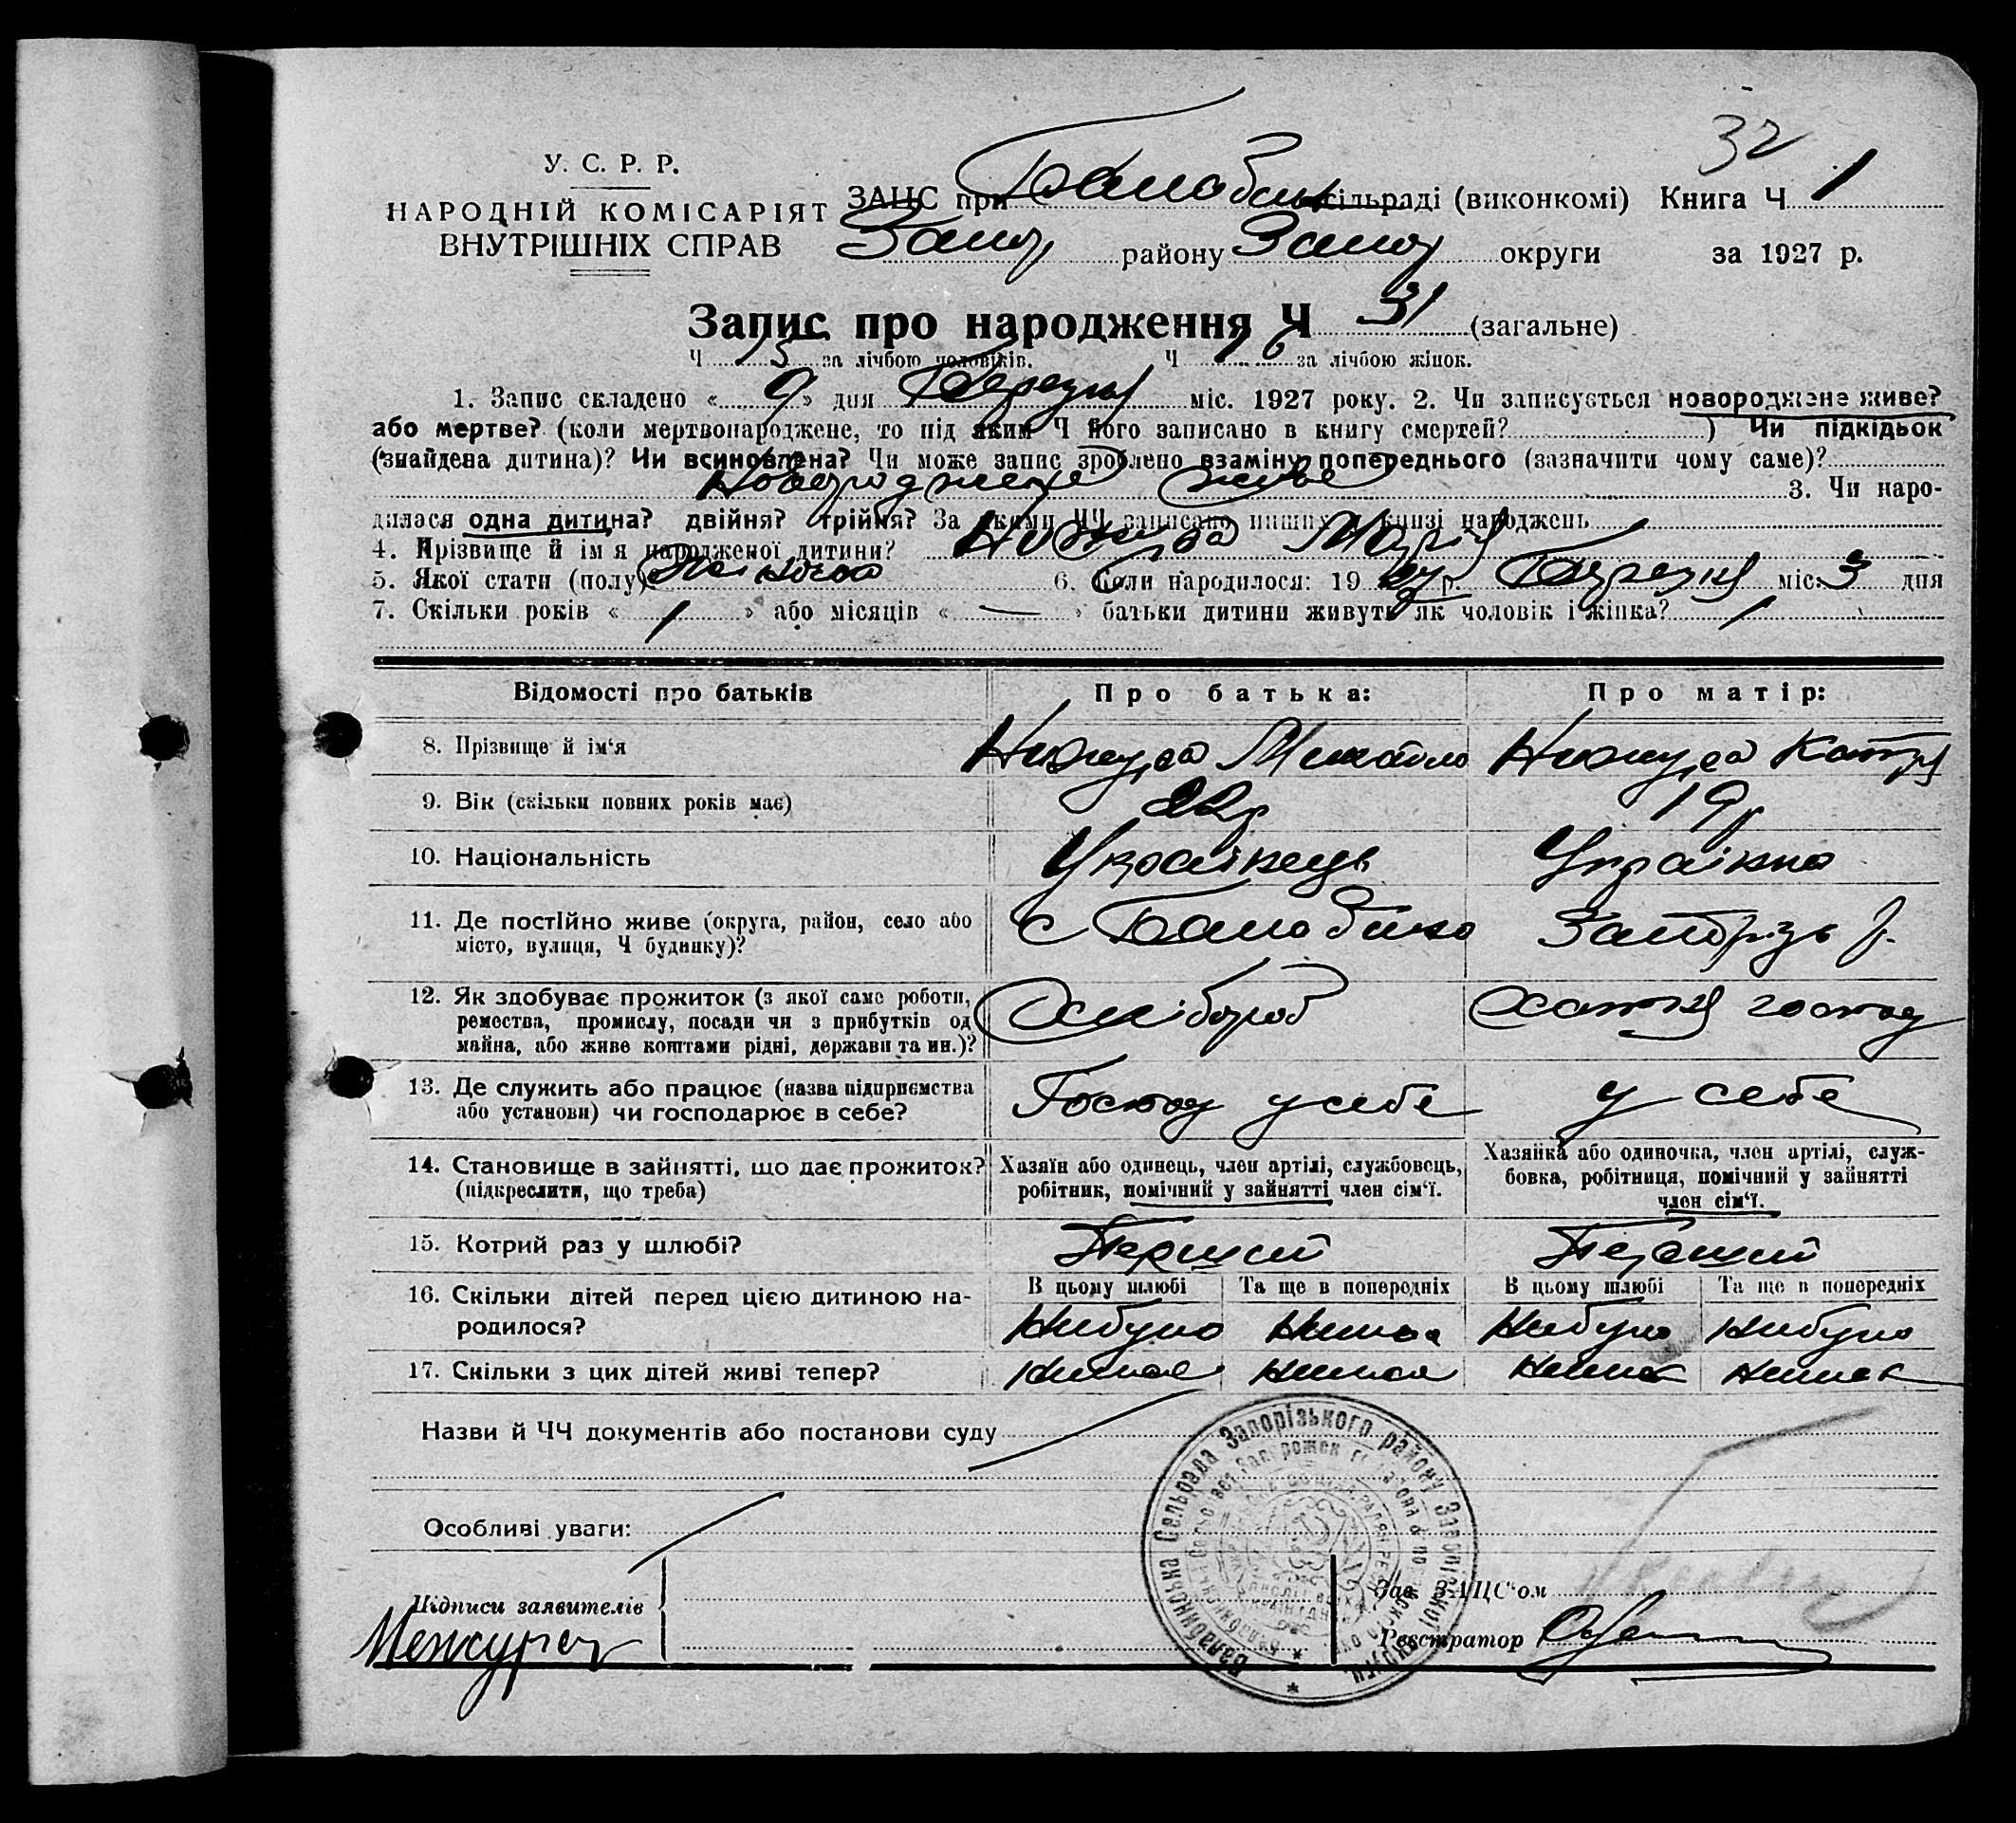 32
У. С. Р. Р.
НАРОДНІЙ КОМІСАРІЯТ
ВНУТРІШНІХ СПРАВ
ЗАЦС при сільраді (виконкомі) Книга Ч 1
Запор району Запор округи за 1927 р.
Запис про народження Ч 31 (загальне)
Ч 15 за лічбою чоловіків. Ч 16 за лічбою жінок.
1. Запис складено « 9 » дня Березня міс. 1927 року. 2. Чи записується новороджене живе?
або мертве? (коли мертвонароджене, то під яким Ч його записано в книгу смертей? ) Чи підкідьок
(знайдена дитина)? Чи всиновлена? Чи може запис зроблено взаміну попереднього (зазначити чому саме)?
Новороджене живе 3. Чи наро-
дилася одна дитина? двійня? трійня? За якими ЧЧ записано инших в книзі народжень
4. Прізвище й ім'я народженої дитини? Марія
5. Якої стати (полу) Жіночої 6. Коли народилося: 1927 р. Березня міс. 3 дня
7. Скільки років « 1 » або місяців « — » батьки дитини живуть як чоловік і жінка?
Відомості про батьків Про батька: Про матір:
8. Прізвище й ім'я Михайло Катря
9. Вік (скільки повних років має) 22р 19р
10. Національність Українець Українка
11. Де постійно живе (округа, район, село або
місто, вулиця, Ч будинку)? с Балабино Запоріз р.
12. Як здобуває прожиток (з якої саме роботи,
ремества, промислу, посади чи з прибутків од
майна, або живе коштами рідні, держави та ин.)? Хлібороб Хатня господ
13. Де служить або працює (назва підприємства
або установи) чи господарює в себе? Господ у себе у себе
14. Становище в зайнятті, що дає прожиток?
(підкреслити, що треба)
Хазяїн або одинець, член артілі, службовець,
робітник, помічний у зайнятті член сім'ї.
Хазяйка або одиночка, член артілі, служ-
бовка, робітниця, помічний у зайнятті
член сім'ї.
15. Котрий раз у шлюбі? Перший Перший
В цьому шлюбі Та ще в попередніх В цьому шлюбі Та ще в попередніх
16. Скільки дітей перед цією дитиною на-
родилося? Небуло Нима Небуло Небуло
17. Скільки з цих дітей живі тепер? Нимає Нимає Нимає Нимає
Назви й ЧЧ документів або постанови суду
Особливі уваги:
Підписи заявителів
Зав. ЗАЦС'ом
Реєстратор
Балабинська Сельрада Запорізького району Запорізької округи